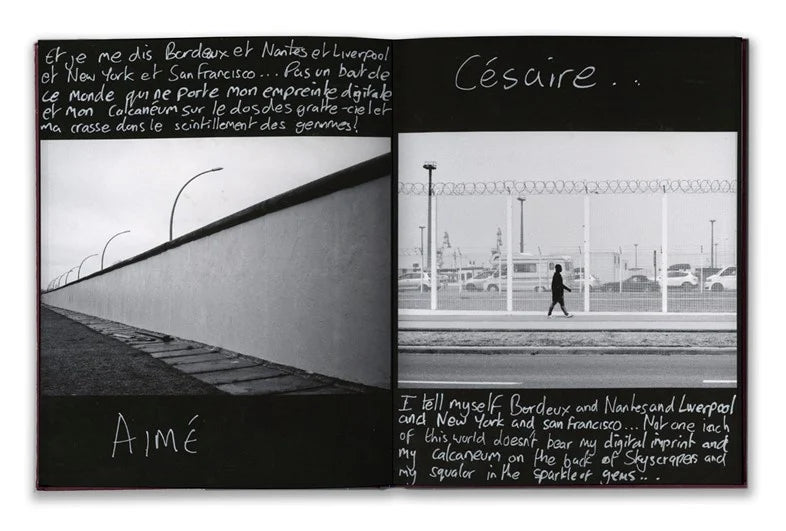 Et je me dis Bordeux et Nantes et Liverpool
et New York et San Francisco... Pas un bout de
ce monde qui ne porte mon empreinte digitale
et mon calcanéum sur le dos des gratte-ciel et
ma crasse dans le scintillement des gemmes!
AIMÉ
Césaire..
I tell myself Bordeux and Nantes and Liverpool
and New York and san Francisco... Not one inch
of this world doesn't bear my digital imprint and
my calcaneum on the back of Skyscrapers and
my squalor in the sparkle of gems...